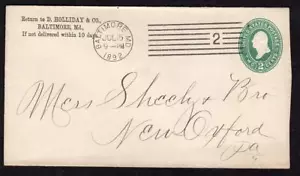 Return to D. HOLLIDAY & CO.
BALTIMORE, Md.
If not delivered within 10 days
BALTIMORE MD.
JUL 15
9-PM
1892
2
UNITED STATES POSTAGE
2
2
TWO CENTS
Mess Sheely & Bro
New Oxford
Pa